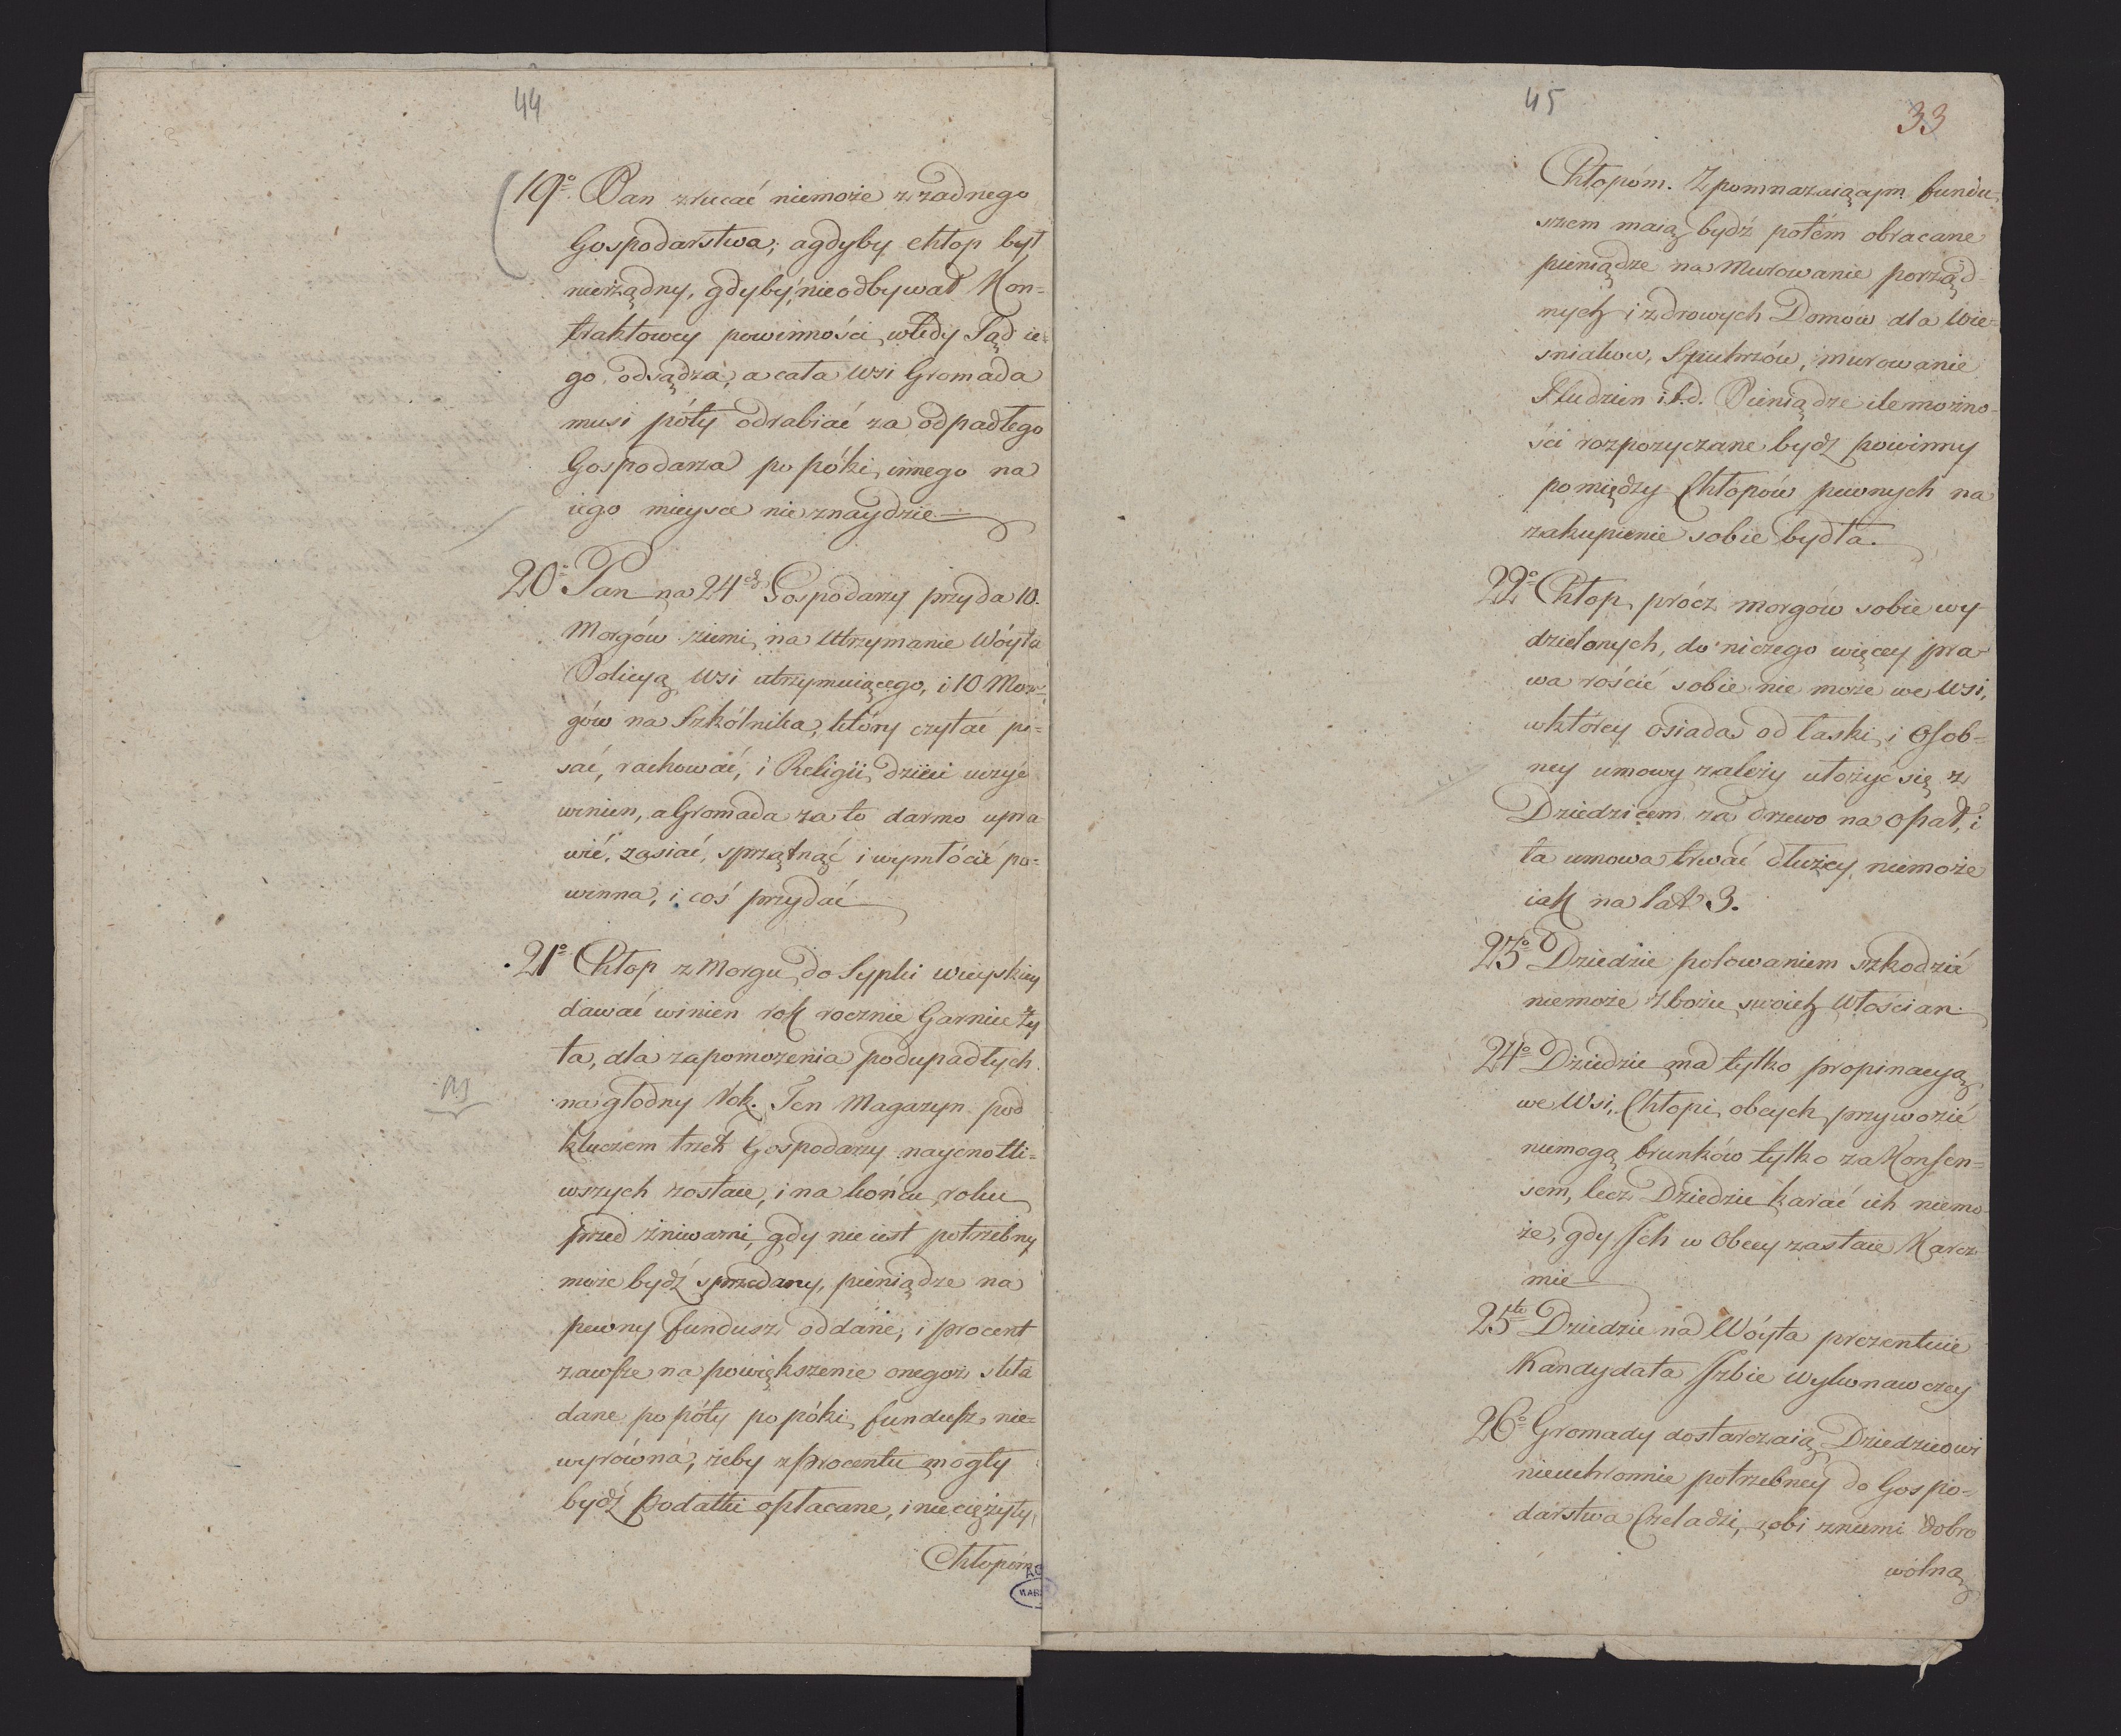 44
19o Pan zrucać niemoże z żadnego
Gospodarstwa; agdyby chłop był
nierządny, gdyby nieodbywał Kon=
traktowey powinności, wtedy Sąd ie=
go odsądza, a cała Wsi Gromada
musi póty odrabiać za odpadłego
Gospodarza po póki innego na
iego mieysce nieznaydzie
20o Pan na 24ch Gospodarzy przyda 10.
Morgów ziemi na Utrzymanie Wóyta
Policyą Wsi utrzymuiącego, i 10 Mor=
gów na Szkólnika, który czytać pi=
sać, rachować, i Religii dzieci uczyć
winien, a Gromada za to darmo upra=
wić, zasiać, sprzątnąć i wymłócić po=
winna, i coś przydać
21o Chłop z Morgu do Sypki wieyskiey
dawać winien rok rocznie Garniec ży
ta, dla zapomożenia podupadłych
na głodny Rok. Ten Magazyn pod
kluczem trzech Gospodarzy naycnotli=
wszych zostaie, i na końcu roku
przed żniwami, gdy nie iest potrzebny
może bydź sprzedany, pieniądze na
pewny fundusz oddane, i procent
zawsze na powiększenie onegoż skła
dane po póty po póki fundusz nie=
wyrówna, żeby z procentu mogły
bydź Podatki opłacane, i nie ciężyły
Chłopom
45
33
Chłopóm. Z pomnażaiącym fundu=
szem maią bydź potém obracane
pieniądze na Murowanie porząd=
nych i zdrowych Domów dla Wie=
śniaków, Spichrzów, murowanie
Studzien i t.d. Pieniądze ile możno=
ści rozpożyczane bydź powinny
pomiędzy Chłopów pewnych na
zakupienie sobie bydła.
22o Chłop prócz morgów sobie wy
dzielonych, do niczego więcey pra=
wa rościć sobie nie może we Wsi,
wktórey osiada, od łaski i Osob=
ney umowy zależy ułożyć się z
Dziedzicem za drzewo na opał, i
ta umowa trwać dłużey niemoże
iak na lat 3.
23o Dziedzic polowaniem szkodzić
niemoże zbożu swoich Włościan.
24o Dziedzic ma tylko propinacyą
we Wsi, Chłopi obcych przywozić
niemogą trunków tylko za Konsen=
sem, lecz Dziedzic karać ich niemo=
że, gdy Ich w Obcey zastaie Karcz
mie
25te Dziedzic na Wóyta prezentuie
Kandydata Izbie Wykonawczey
26o Gromady dostarczaią Dziedzicowi
nieuchronnie potrzebney do Gospo=
darstwa Czeladzi, robi zniemi dobro
wolną